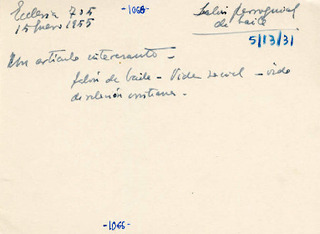 Ecclesia 705
15 Enero 1955
-1066-
Salón parroquial
de baile
5/13/31
Un artículo interesante -
Salón de baile - Vida social - vida
de relación cristiana -
-1066-